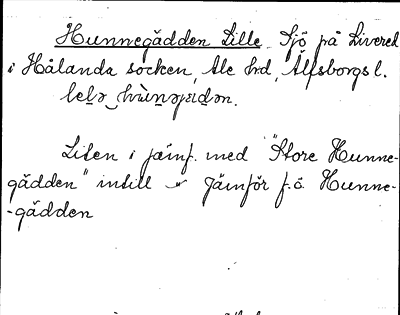 Hunnegädden Lille. Sjö på Livered
i Hålanda socken, Ale hrd, Älfsborgs l.
Liten i jämf. med "Store Hunne-
gädden" intill. Jämför f. ö. Hunne-
-gädden